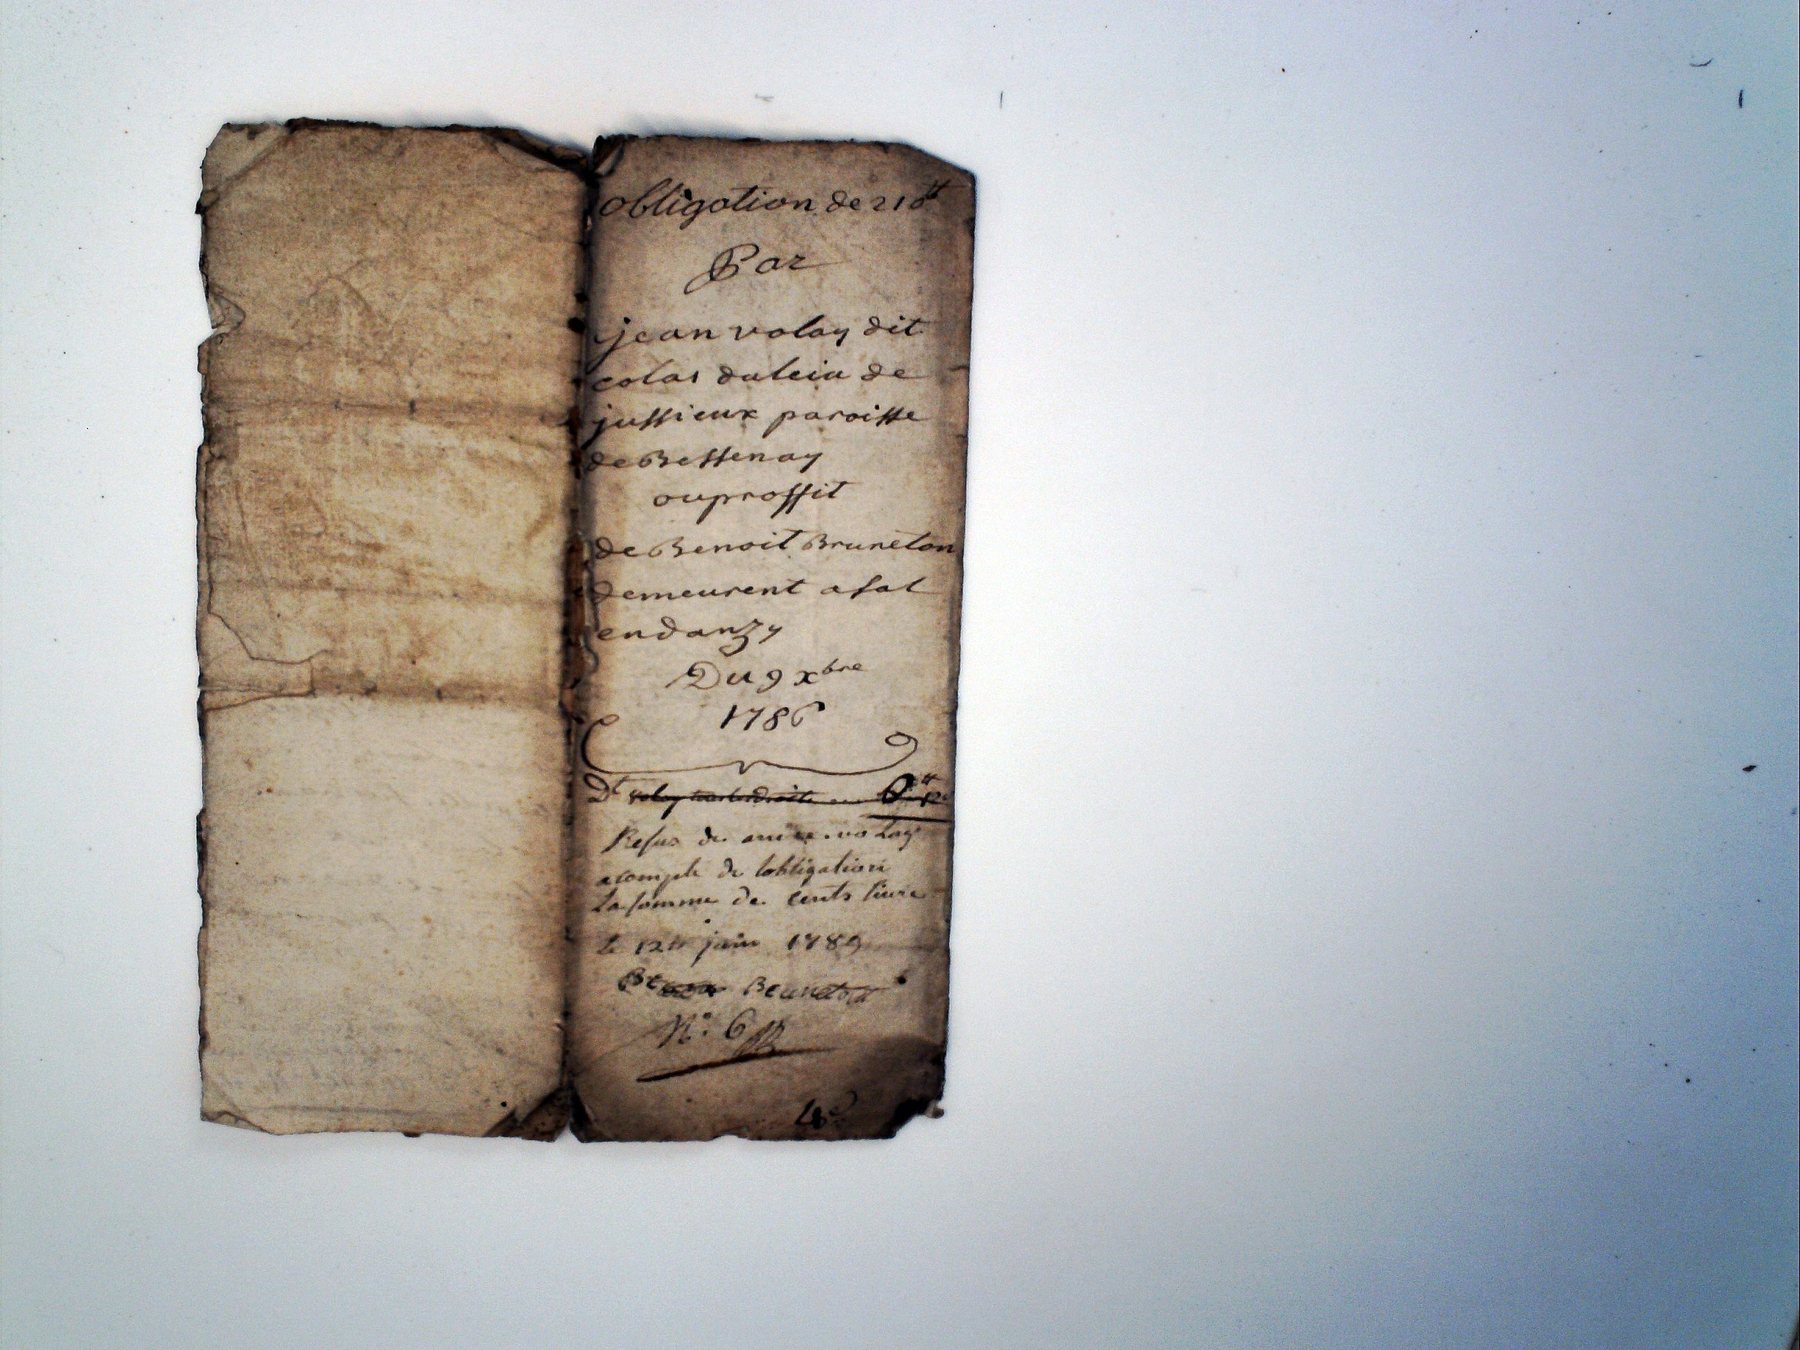 obligation de 210<sup>tt</sup>
Par
jean volay dit
colas du leiu de
jussieux paroisse
de Bessenay
ou proffit
de Benoit Bruneton
demeurent a sal
en danzy
Du 9 xbre
1786
Dt
de
acompte de lobligation
La somme de cents livre
le 12 juin 1789
Bruneton
N° 6